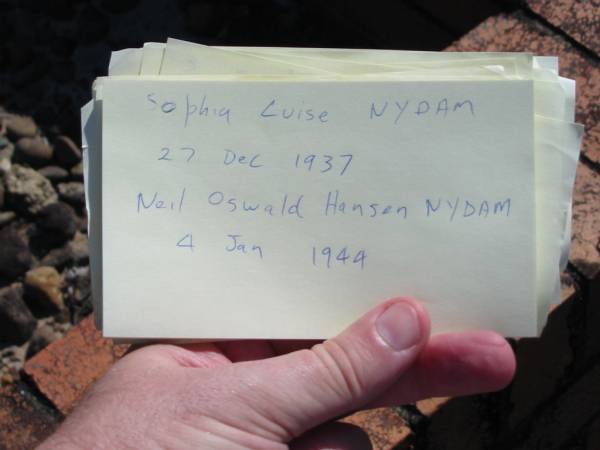 Sophia Luise NYDAM
27 Dec 1937
Neil Oswald Hansen NYDAM
4 Jan 1944